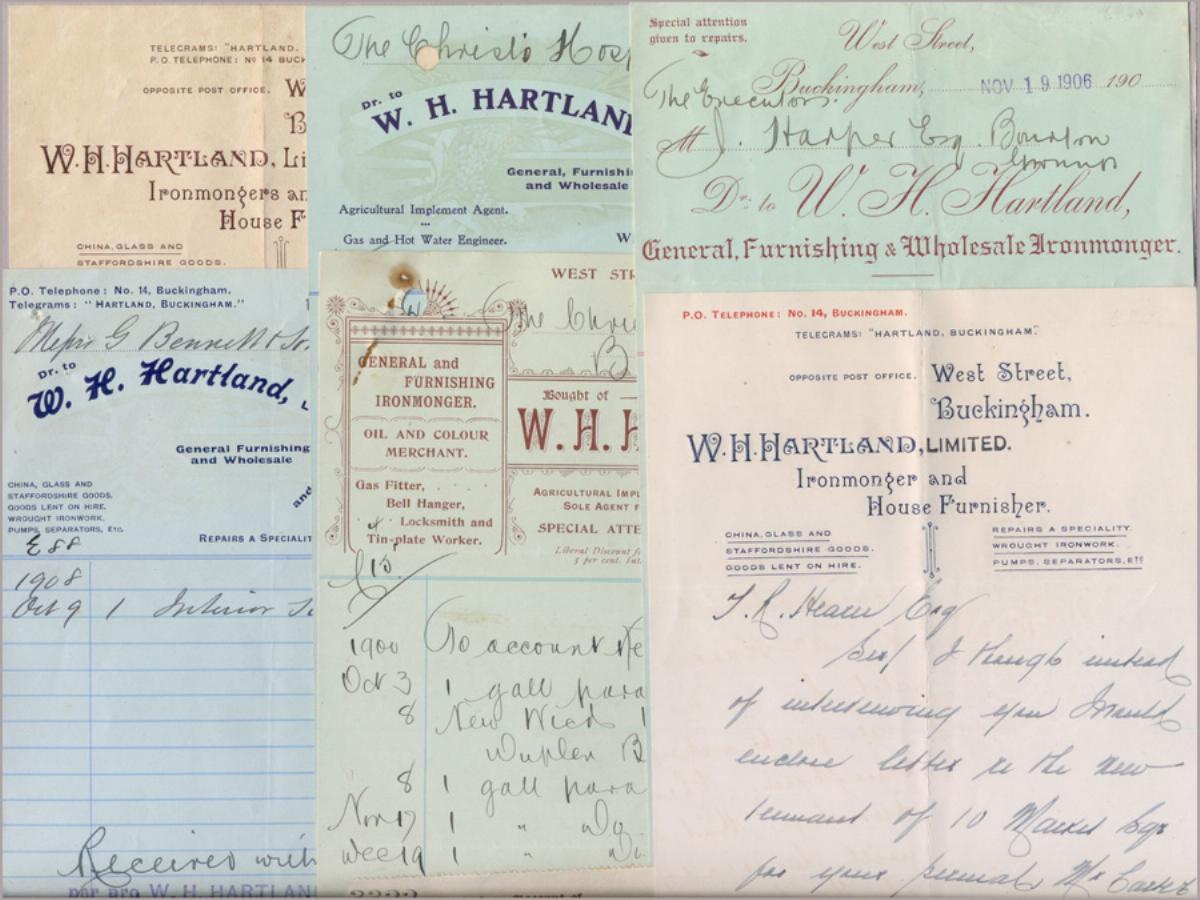 TELEGRAMS: "HARTLAND.
P.O. TELEPHONE: No 14 BUCK
OPPOSITE POST OFFICE. W
B
W.H. HARTLAND, Li
Ironmongers an
House F
CHINA, GLASS AND
STAFFORDSHIRE GOODS.
The Christ's Hosp
Dr. to
W. H. HARTLAN
General, Furnishi
and Wholesale
Agricultural Implement Agent.
Gas and Hot Water Engineer. W
Special attention
given to repairs.
West Street,
Buckingham, NOV 19 1906 190
The Executors
M J. Harper Esq. Bourton
Dr. to W. H. Hartland,
General, Furnishing & Wholesale Ironmonger.
P.O. Telephone: No. 14, Buckingham.
Telegrams: "HARTLAND, BUCKINGHAM."
Messrs G Bennett & So
Dr. to
W. H. Hartland, L
General Furnishing
and Wholesale
and
CHINA, GLASS AND
STAFFORDSHIRE GOODS.
GOODS LENT ON HIRE.
WROUGHT IRONWORK.
PUMPS, SEPARATORS, ETC.
REPAIRS A SPECIALIT
E 88
1908
Oct 9 1 Interior
Received with
par pro W. H. HARTLAN
WEST STR
The Chri
B
GENERAL and
FURNISHING
IRONMONGER.
OIL AND COLOUR
MERCHANT.
Gas Fitter,
Bell Hanger,
Locksmith and
Tin-plate Worker.
Bought of
W. H. H
AGRICULTURAL IMPL
SOLE AGENT F
SPECIAL ATTE
Liberal Discount f
5 per cent. Int.
1900 To account
Oct 3 1 gall para
8 New Wick 1
Duplex B
8 1 gall para
Nov 17 1 " Do
Dec 19 1 " Do
P.O. TELEPHONE: No. 14, BUCKINGHAM.
TELEGRAMS: "HARTLAND, BUCKINGHAM."
OPPOSITE POST OFFICE. West Street,
Buckingham.
W.H. HARTLAND, LIMITED.
Ironmonger and
House Furnisher.
CHINA, GLASS AND
STAFFORDSHIRE GOODS.
GOODS LENT ON HIRE.
REPAIRS A SPECIALITY.
WROUGHT IRONWORK.
PUMPS, SEPARATORS, ETC
T. R. Hearn Esq
I though instead
of interviewing you I would
enclose letter re the new
tennant of 10 Market Sqr
for your perusal Mr